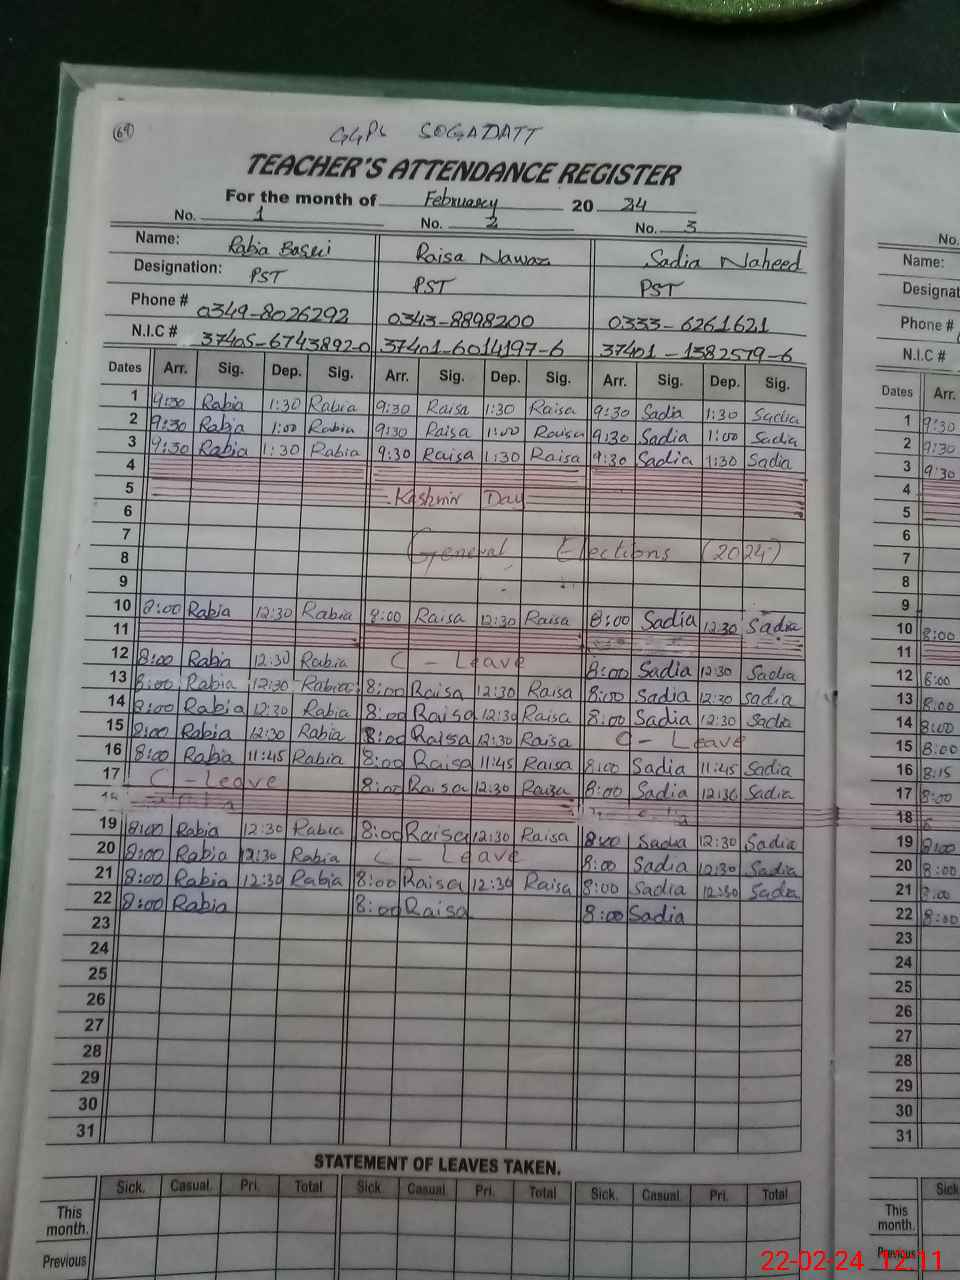 69
GGPS SOGADATT
TEACHER'S ATTENDANCE REGISTER
For the month of February 20 24
No. 1 No. 2 No. 3 No.
Name: Rabia Basri Raisa Nawaz Sadia Naheed Name:
Designation: PST PST PST Designat
Phone # 0349-8026292 0343-8898200 0333-6261621 Phone #
N.I.C # 37405-6743892-0 37401-6014197-6 37401-1382579-6 N.I.C #
Dates Arr. Sig. Dep. Sig. Arr. Sig. Dep. Sig. Arr. Sig. Dep. Sig. Dates Arr.
1 9:30 Rabia 1:30 Rabia 9:30 Raisa 1:30 Raisa 9:30 Sadia 1:30 Sadia 1 9:30
2 9:30 Rabia 1:00 Rabia 9:30 Raisa 1:00 Raisa 9:30 Sadia 1:00 Sadia 2 9:30
3 9:30 Rabia 1:30 Rabia 9:30 Raisa 1:30 Raisa 9:30 Sadia 1:30 Sadia 3 9:30
4 4
5 Kashmir Day 5
6 6
7 7
8 General Elections (2024) 8
9 9
10 8:00 Rabia 12:30 Rabia 8:00 Raisa 12:30 Raisa 8:00 Sadia 12:30 Sadia 10 8:00
11 11
12 8:00 Rabia 12:30 Rabia C - Leave 8:00 Sadia 12:30 Sadia 12 8:00
13 8:00 Rabia 12:30 Rabia 8:00 Raisa 12:30 Raisa 8:00 Sadia 12:30 Sadia 13 8:00
14 8:00 Rabia 12:30 Rabia 8:00 Raisa 12:30 Raisa 8:00 Sadia 12:30 Sadia 14 8:00
15 8:00 Rabia 12:30 Rabia 8:00 Raisa 12:30 Raisa C - Leave 15 8:00
16 8:00 Rabia 11:45 Rabia 8:00 Raisa 11:45 Raisa 8:00 Sadia 11:45 Sadia 16 8:15
17 C - Leave 8:00 Raisa 12:30 Raisa 8:00 Sadia 12:30 Sadia 17 8:00
18 18
19 8:00 Rabia 12:30 Rabia 8:00 Raisa 12:30 Raisa 8:00 Sadia 12:30 Sadia 19 8:00
20 8:00 Rabia 12:30 Rabia C - Leave 8:00 Sadia 12:30 Sadia 20 8:00
21 8:00 Rabia 12:30 Rabia 8:00 Raisa 12:30 Raisa 8:00 Sadia 12:30 Sadia 21 8:00
22 8:00 Rabia 8:00 Raisa 8:00 Sadia 22 8:00
23 23
24 24
25 25
26 26
27 27
28 28
29 29
30 30
31 31
STATEMENT OF LEAVES TAKEN.
Sick. Casual. Pri. Total Sick Casual Pri. Total Sick. Casual. Pri. Total Sick
This month. This month.
Previous Previous
22-02-24 12:11